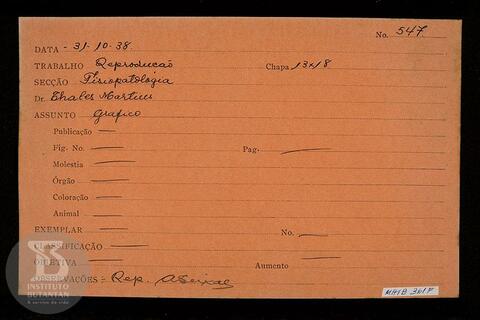 No. 547
DATA - 31-10-38
TRABALHO Reproducaõ Chapa 13x18
SECÇÃO Fisiopatologia
Dr. Thales Martins
ASSUNTO grafico
Publicação —
Fig. No. — Pag. —
Molestia —
Órgão —
Coloração —
Animal —
EXEMPLAR — No. —
CLASSIFICAÇÃO —
OBJETIVA — Aumento —
OBSERVAÇÕES = Rep.
INSTITUTO
BUTANTAN
A serviço da vida